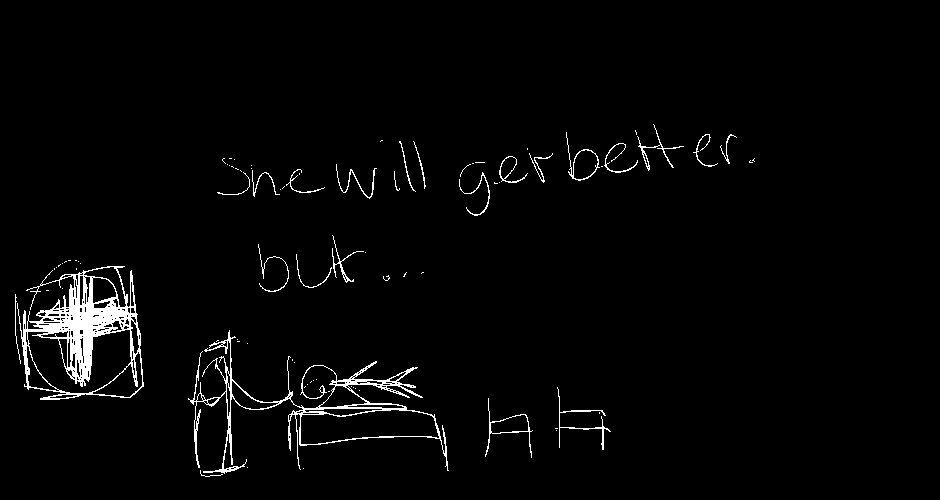 She will get better.
but...